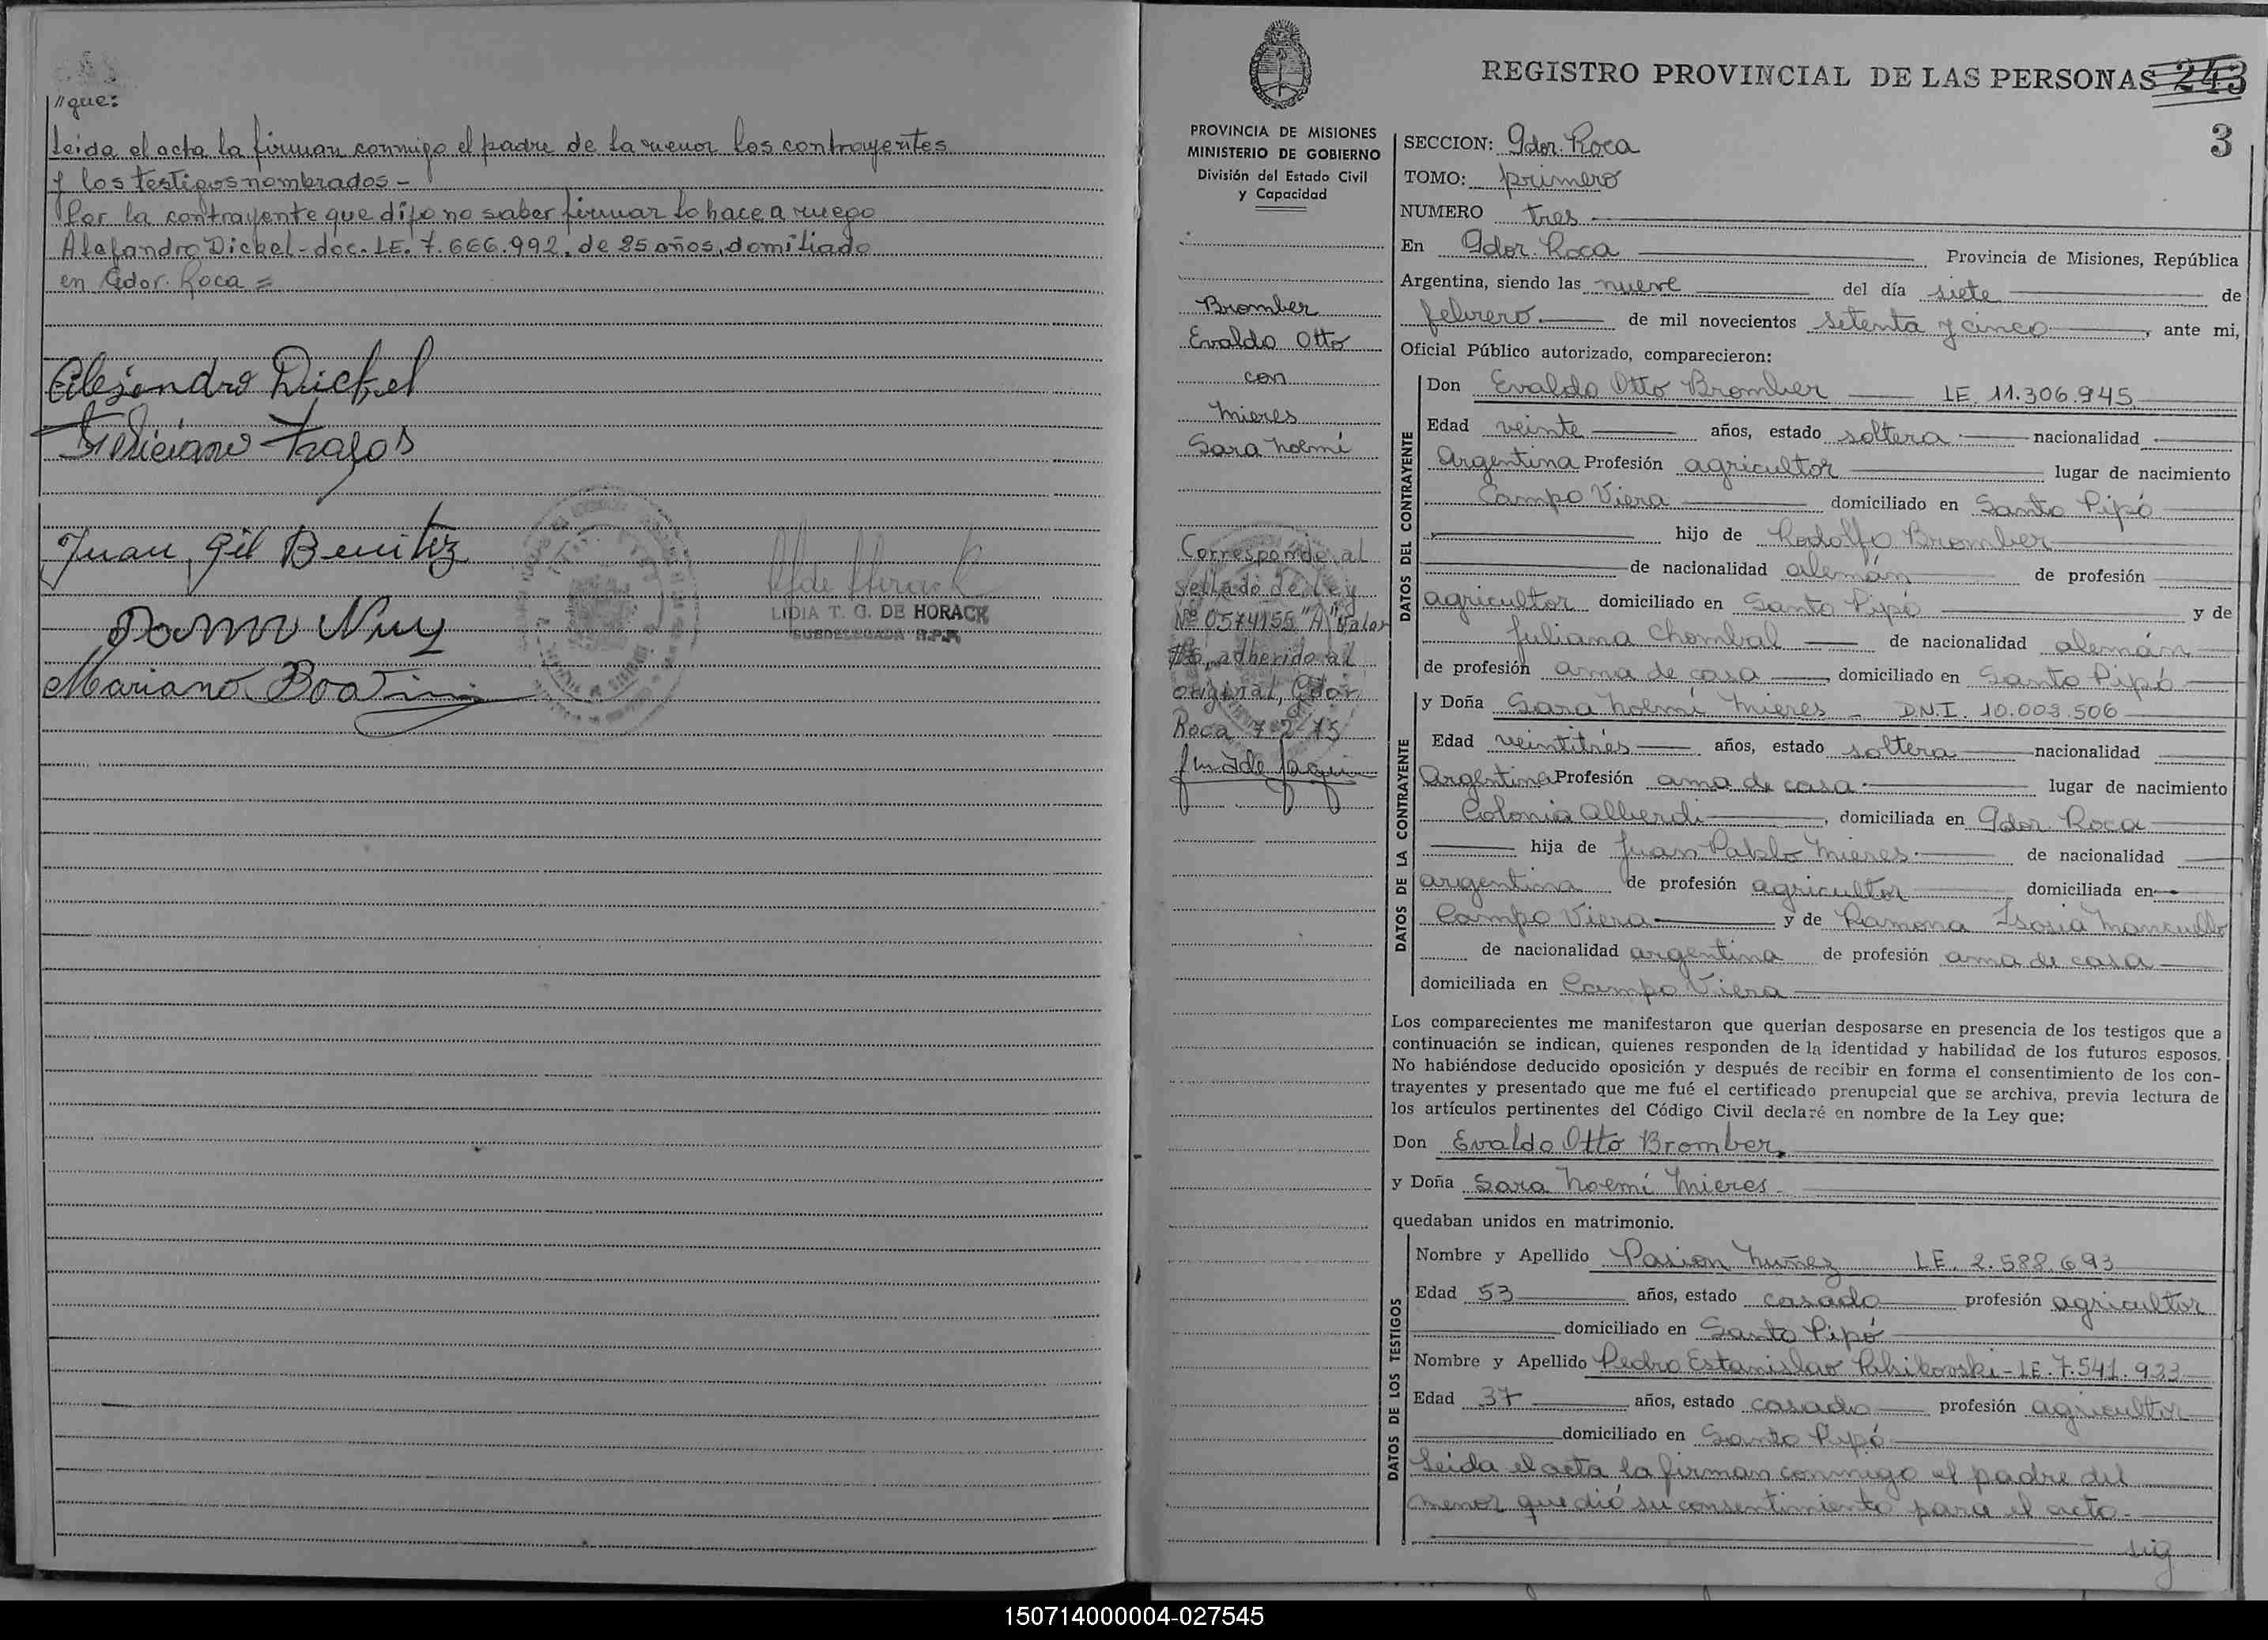 //que:
leida el acta la firman conmigo el padre de la menor los contrayentes
y los testigos nombrados -
Por la contrayente que dijo no saber firmar lo hace a ruego
Alejandro Dickel - doc. LE. 7.666.992. de 25 años, domiliado
en Gdor. Roca =
Alejandro Dickel
Feliciano
Juan Gil Benitez
LIDIA T. G. DE HORACK
SUBDELEGADA R.P.P.
Mariano
REGISTRO PROVINCIAL DE LAS PERSONAS 243
3
PROVINCIA DE MISIONES
MINISTERIO DE GOBIERNO
División del Estado Civil
y Capacidad
Bromber
Evaldo Otto
con
Mieres
Sara Noemí
Corresponde al
sellado de ley
Nº 0574155 "A" Valor
adherido al
original, Gdor.
Roca 7-2-75
SECCION: Gdor. Roca
TOMO: primero
NUMERO tres
En Gdor. Roca Provincia de Misiones, República
Argentina, siendo las nueve del día siete de
febrero de mil novecientos setenta y cinco, ante mi,
Oficial Público autorizado, comparecieron:
DATOS DEL CONTRAYENTE
Don Evaldo Otto Bromber LE. 11.306.945
Edad veinte años, estado soltero nacionalidad
Argentina Profesión agricultor lugar de nacimiento
Campo Viera domiciliado en Santo Pipó
hijo de Rodolfo Bromber
de nacionalidad alemán de profesión
agricultor domiciliado en Santo Pipó y de
Juliana Chombal de nacionalidad alemán
de profesión ama de casa, domiciliado en Santo Pipó
DATOS DE LA CONTRAYENTE
y Doña Sara Noemí Mieres - DN.I. 10.003.506
Edad veintitrés años, estado soltera nacionalidad
Argentina Profesión ama de casa lugar de nacimiento
Colonia Alberdi, domiciliada en Gdor. Roca
hija de Juan Pablo Mieres de nacionalidad
argentina de profesión agricultor domiciliada en
Campo Viera y de Ramona Isosia Mancuello
de nacionalidad argentina de profesión ama de casa
domiciliada en Campo Viera
Los comparecientes me manifestaron que querían desposarse en presencia de los testigos que a
continuación se indican, quienes responden de la identidad y habilidad de los futuros esposos.
No habiéndose deducido oposición y después de recibir en forma el consentimiento de los con-
trayentes y presentado que me fué el certificado prenupcial que se archiva, previa lectura de
los artículos pertinentes del Código Civil declaré en nombre de la Ley que:
Don Evaldo Otto Bromber.
y Doña Sara Noemí Mieres
quedaban unidos en matrimonio.
DATOS DE LOS TESTIGOS
Nombre y Apellido Pasion Nuñez LE. 2.588.693
Edad 53 años, estado casado profesión agricultor
domiciliado en Santo Pipó
Nombre y Apellido Pedro Estanislao - LE. 7.541.933
Edad 37 años, estado casado profesión agricultor
domiciliado en Santo Pipó
Leida el acta la firman conmigo el padre del
menor que dió su consentimiento para el acto.
sig
150714000004-027545